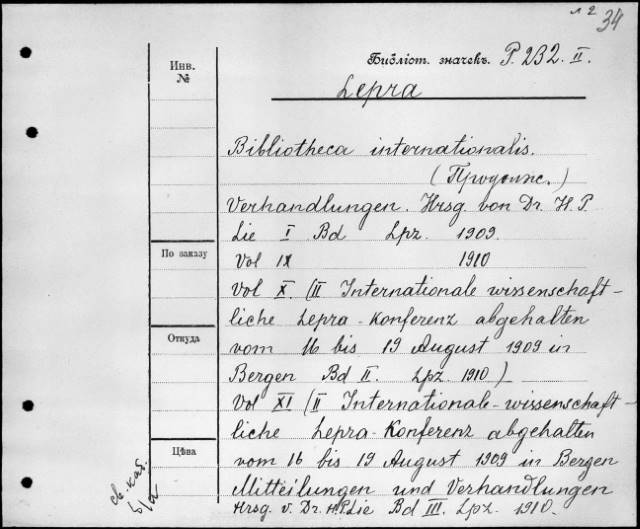 л 2 34
Библіот. значекъ. P. 232. II.
Инв.
№
Lepra
Bibliotheca internationalis.
Verhandlungen. Hrsg. von Dr. H. P.
Lie I Bd Lpz. 1909.
По заказу
Vol IX 1910
Vol X. (II Internationale wissenschaft-
liche Lepra-Konferenz abgehalten
Откуда
vom 16 bis 19 August 1909 in
Bergen Bd II. Lpz. 1910)
Vol XI (II Internationale-wissenschaft-
liche Lepra-Konferenz abgehalten
Цѣна
vom 16 bis 19 August 1909 in Bergen
Mitteilungen und Verhandlungen
Hrsg. v. Dr. H.P. Lie Bd III. Lpz. 1910.